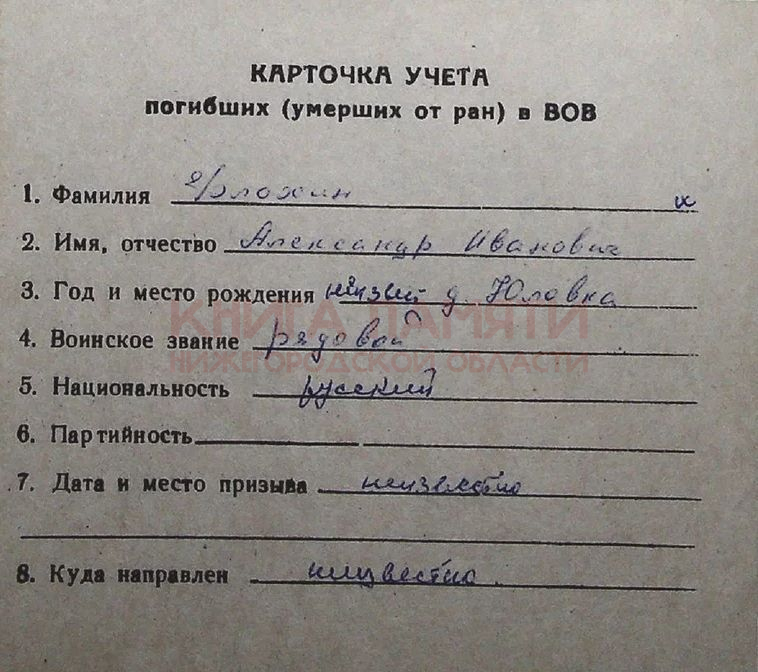 КАРТОЧКА УЧЕТА
погибших (умерших от ран) в ВОВ
1. Фамилия
2. Имя, отчество Александр Иванович
3. Год и место рождения д. Юловка
КНИГА ПАМЯТИ
4. Воинское звание рядовой
НИЖЕГОРОДСКОЙ ОБЛАСТИ
5. Национальность русский
6. Партийность
7. Дата и место призыва неизвестно
8. Куда направлен неизвестно.